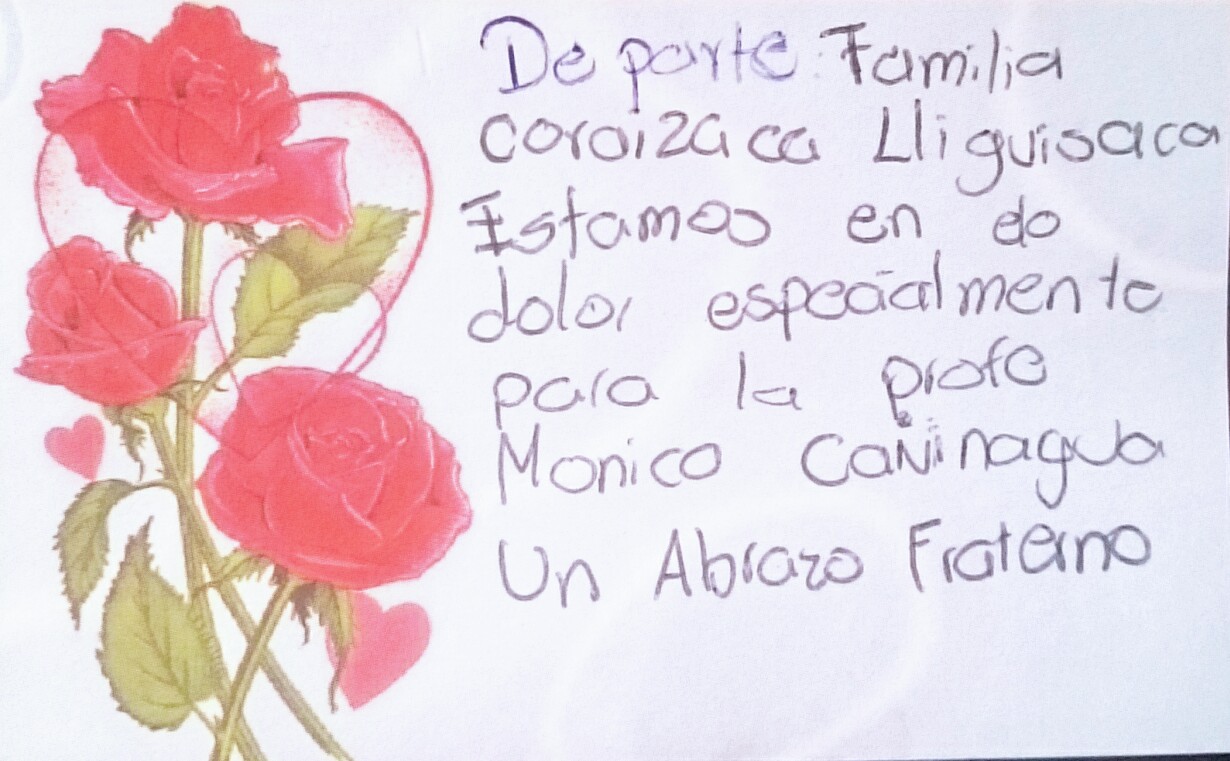 De parte: Familia
Coroizaca Lliguisaca
Estamos en do
dolor especialmente
para la profe
Monica Cañinagua
Un Abrazo Fraterno